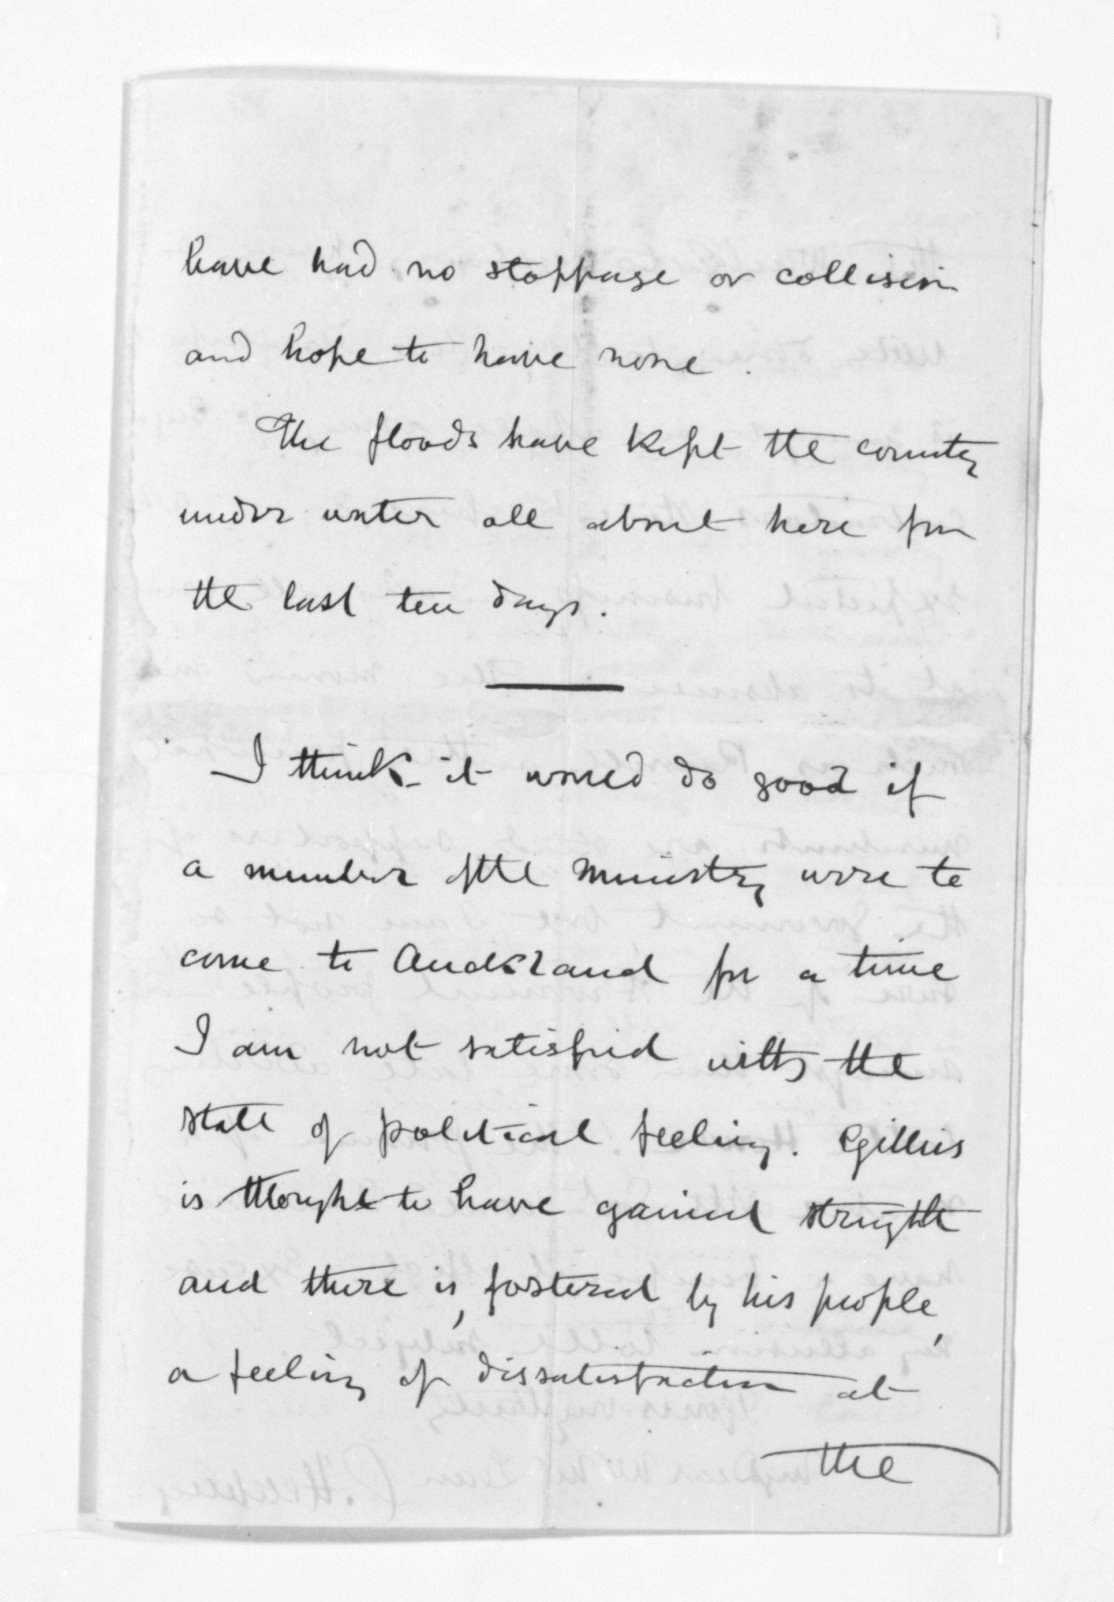 have had no stoppage or collision
and hope to have none.
The floods have kept the country
under water all about here for
the last ten days.
I think it would do good if
a member of the Ministry were to
come to Auckland for a time
I am not satisfied with the
state of political feeling. Gillies
is thought to have gained strength
and there is, fostered by his people,
a feeling of dissatisfaction at
the